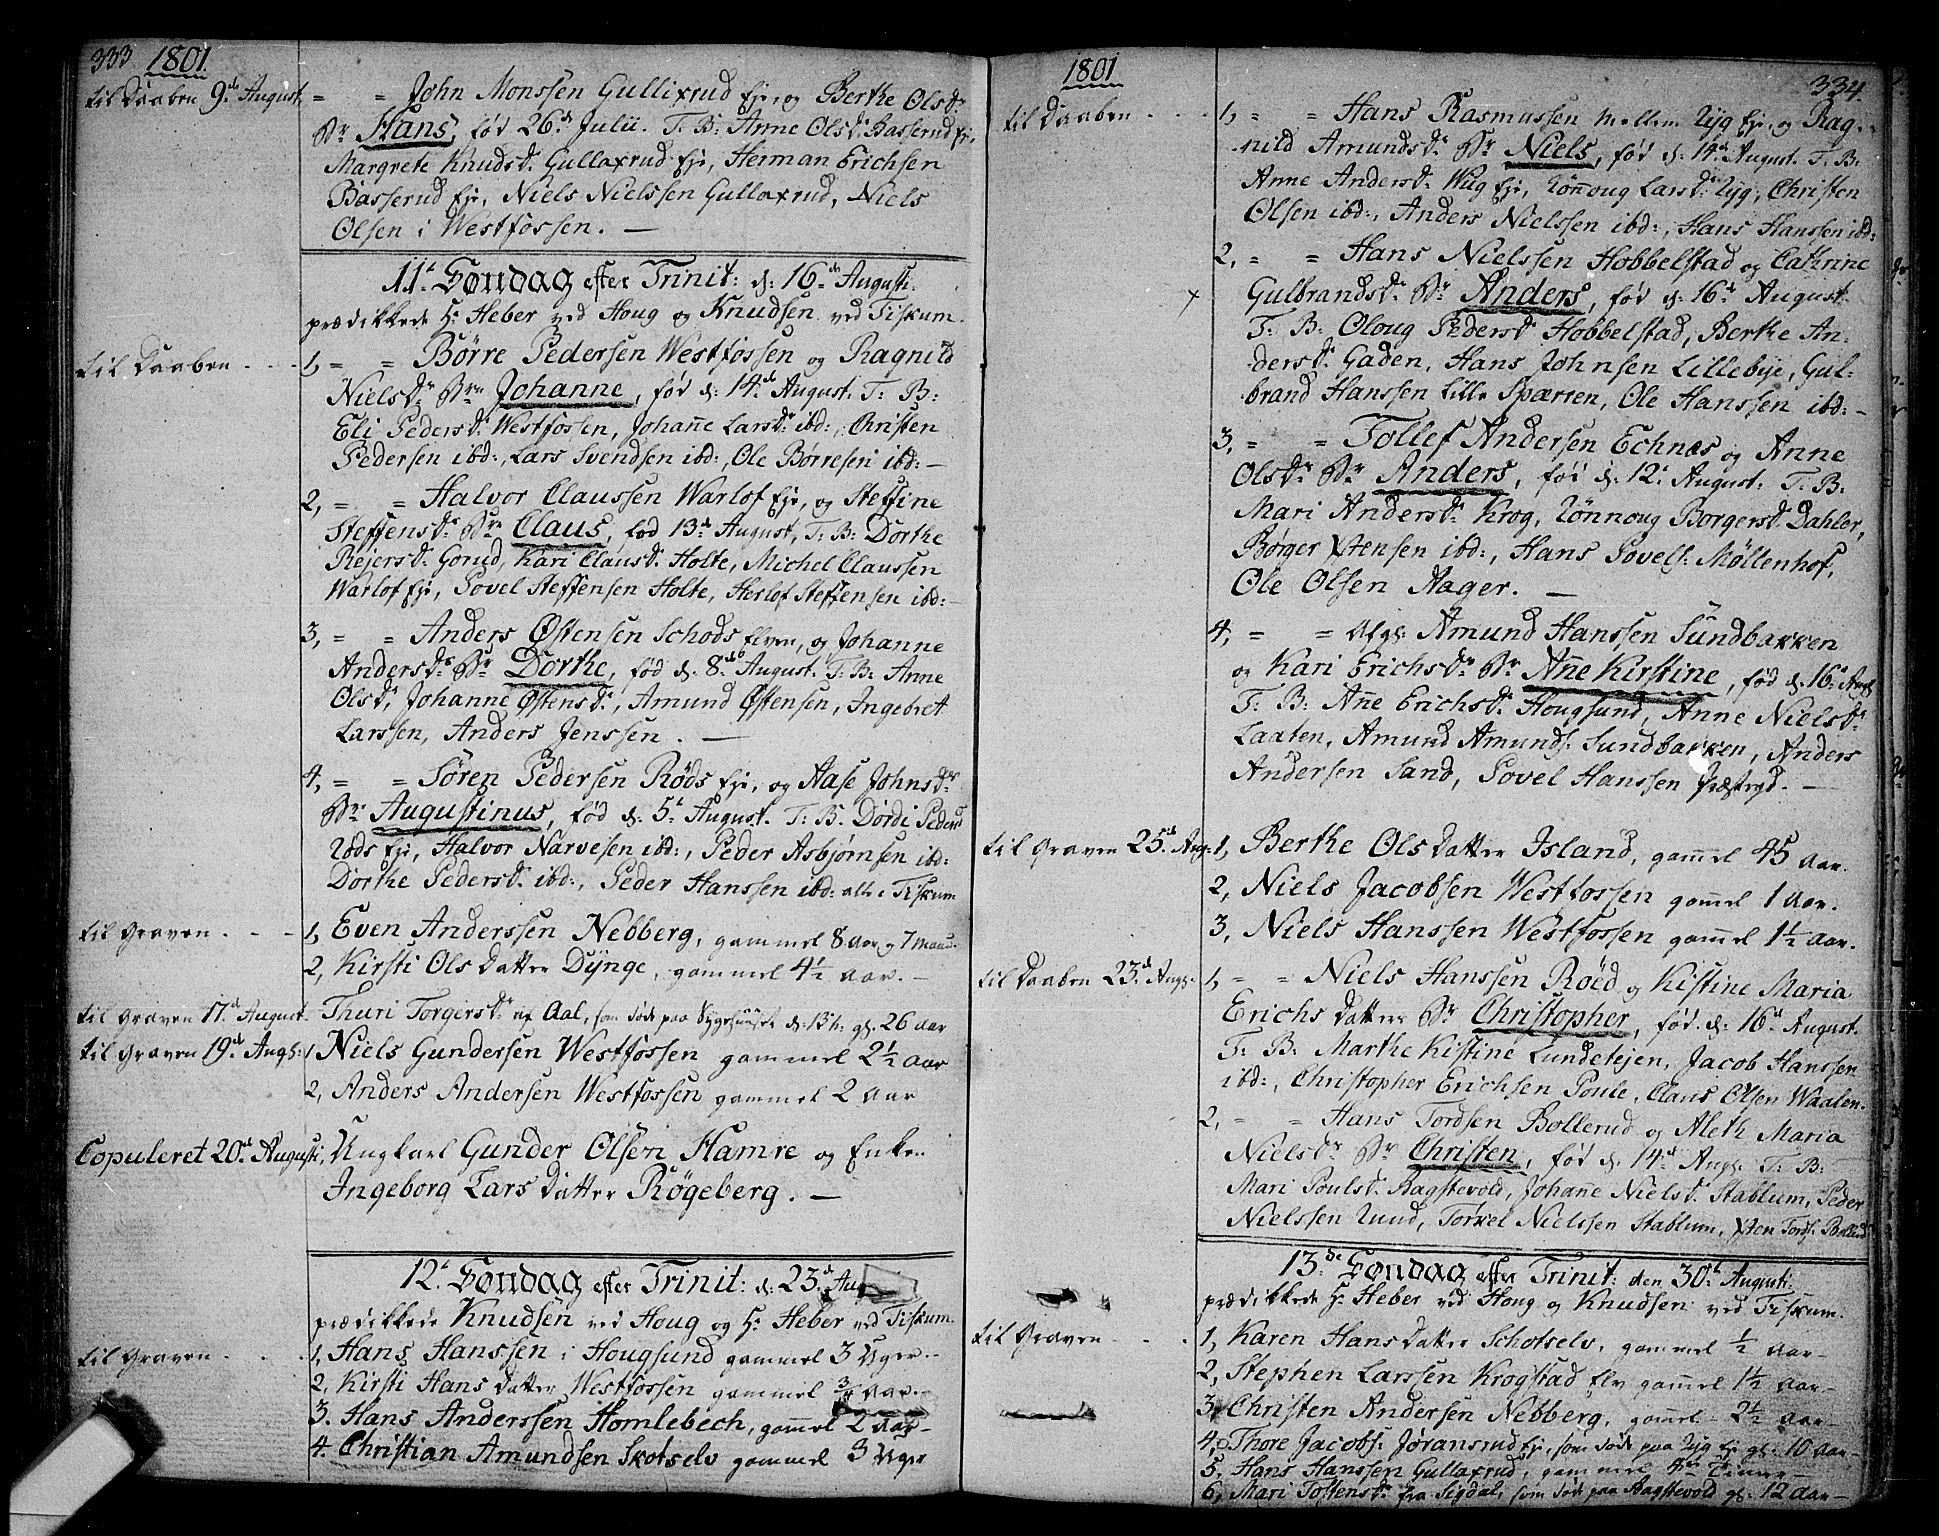 333 1801.
til Daaben 9de August,
= = John Monssen Gullixrud Eje og Berthe Olsdr
Br Hans, fød 26de Julii. T: B: Anne Olsd: Basserud Eje,
Margrete Knudsd: Gullaxrud Eje, Herman Erichsen
Basserud Eje, Niels Nielssen Gullaxrud, Niels
Olsen i Westfossen. —
11te Søndag efter Trinit: d: 16de Augusti.
prædikkede Hr Heber ved Houg og Knudsen ved Fiskum.
til Daaben . . . .
1, = = Børre Pedersen Westfossen og Ragnild
Nielsdr Brn Johanne, fød d: 14de August. T: B:
Eli Pedersd: Westfossen, Johañe Larsdr ibd:, Christen
Pedersen ibd:, Lars Svendsen ibd:, Ole Børresen ibd: —
2, = = Halvor Claussen Warlof Eje, og Steffine
Steffensdr Brn Claus, fød 13de August, T: B: Dorthe
Rejersd: Gorud, Kari Clausd: Holte, Michel Claussen
Warlof Eje, Povel Steffensen Holte, Herlof Steffensen ibd: —
3, = = Anders Østensen Schods Elven, og Johanne
Andersdr Br Dorthe, fød d: 8de August. T: B: Anne
Olsd:, Johanne Østensd:, Amund Østensen, Ingebret
Larssen, Anders Jenssen. —
4, = = Søren Pedersen Røds Eje, og Aase Johnsdr
Br Augustinus, fød d: 5te August. T: B. Dordi Peders
Røds Eje, Halvor Narvesen ibd:, Peder Asbjørnsen ibd:
Dorthe Pedersd: ibd:, Peder Hanssen ibd: alle i Fiskum
til Graven . - -
1, Even Anderssen Nebberg, gammel 8 Aar og 7 Maan:
2, Kirsti Olsdatter Dynge, gammel 4½ Aar. —
til Graven 17de August. Thuri Torgersdr af Aal, som døde paa Sygehuuset d: 13h: gl: 26 Aar
til Graven 19de Augs: 1, Niels Gundersen Westfossen gammel 2½ Aar
2, Anders Andersen Westfossen gammel 2 Aar
Copuleret 20de Augusti, Ungkarl Gunder Olsen Hamre og Enken
Ingeborg Larsdatter Røgeberg. —
12te Søndag efter Trinit: d: 23de Aug
prædikkede Knudsen ved Houg og Hr Heber ved Fiskum.
til Graven . . . .
1, Hans Hanssen i Hougsund gammel 3 Uger. -
2, Kirsti Hansdatter Westfossen gammel ¾ Aar. -
3. Hans Anderssen Homlebech, gam̃el 2 Aar -
4. Christian Amundsen Skotselv gammel 3 Uger
1801 334.
til Daaben . . .
1, = = Hans Rasmussen Mellem Ryg Eje og Rag-
nild Amundsdr Br Niels, fød d: 14de August. T: B:
Anne Andersdr Wug Eje, Rønnoug Larsd: Ryg, Christen
Olsen ibd:, Anders Nielssen ibd:, Hans Hanssen ibd:
2, = = Hans Nielssen Hobbelstad og Cathrine
Gulbrandsdr Br Anders, fød d: 16de August.
T: B: Oloug Pedersd: Hobbelstad, Berthe An-
dersdr Gaden, Hans Johnsen Lillebye, Gul-
brand Hanssen Lille Spærren, Ole Hanssen ibd: —
3, = = Tollef Andersen Echnæs og Anne
Olsdr Br Anders, fød d: 12te August. T: B:
Mari Andersdr Krog, Rønnoug Borgersd: Dahler,
Børger Xstensen ibd:, Hans Povels: Møllenhof,
Ole Olsen Aager. —
4, = = Afgl: Amund Hanssen Sundbakken
og Kari Erichsdr Br Añe Kirstine, fød d: 16de Augs
T: B: Añe Erichsd: Hougsund, Anne Nielsdr
Laaten, Amund Amunds: Sundbakken, Anders
Andersen Sand, Povel Hanssen Præstryd. —
til Graven 25de Aug: 1, Berthe Olsdatter Island, gam̃el 45 Aar.
2, Niels Jacobsen Westfossen gam̃el 1 Aar.
3, Niels Hanssen Westfossen gam̃el 1½ Aar.
til Daaben 23de Augs. 1, = = Niels Hanssen Røed og Kistine Maria
Erichsdatter Br Christopher, fød d: 16de August.
T: B: Marthe Kistine Lundetejen, Jacob Hanssen
ibd:, Christopher Erichsen Poule, Claus Olsen Waalen.
2, = = Hans Tordsen Bollerud og Aleth Maria
Nielsdr Br Christen, fød d: 14de Augs: T: B:
Mari Poulsd: Aagstevold, Johañe Nielsd: Stablum, Peder
Nielssen Ruud, Torkel Nielssen Stablum, Xsten Tords: Bollerud
13de Søndag efter Trinit: den 30te Augusti.
prædikkede Hr Heber ved Houg og Knudsen ved Fiskum.
til Graven . . . .
1, Karen Hansdatter Schotselv, gam̃el ½ Aar -
2, Stephen Larssen Krogstad Elv gam̃el 1½ Aar -
3, Christen Andersen Nebberg, gam̃el - 2½ Aar -
4, Thore Jacobs: Jøransrud Eje, som døde paa Ryg Eje gl: 10 Aar -
5, Hans Hanssen Gullaxrud, gammel 4re Timer -
6, Mari Tostensdr fra Sigdal, som døde paa Aagstevold gl: 12 Aar -